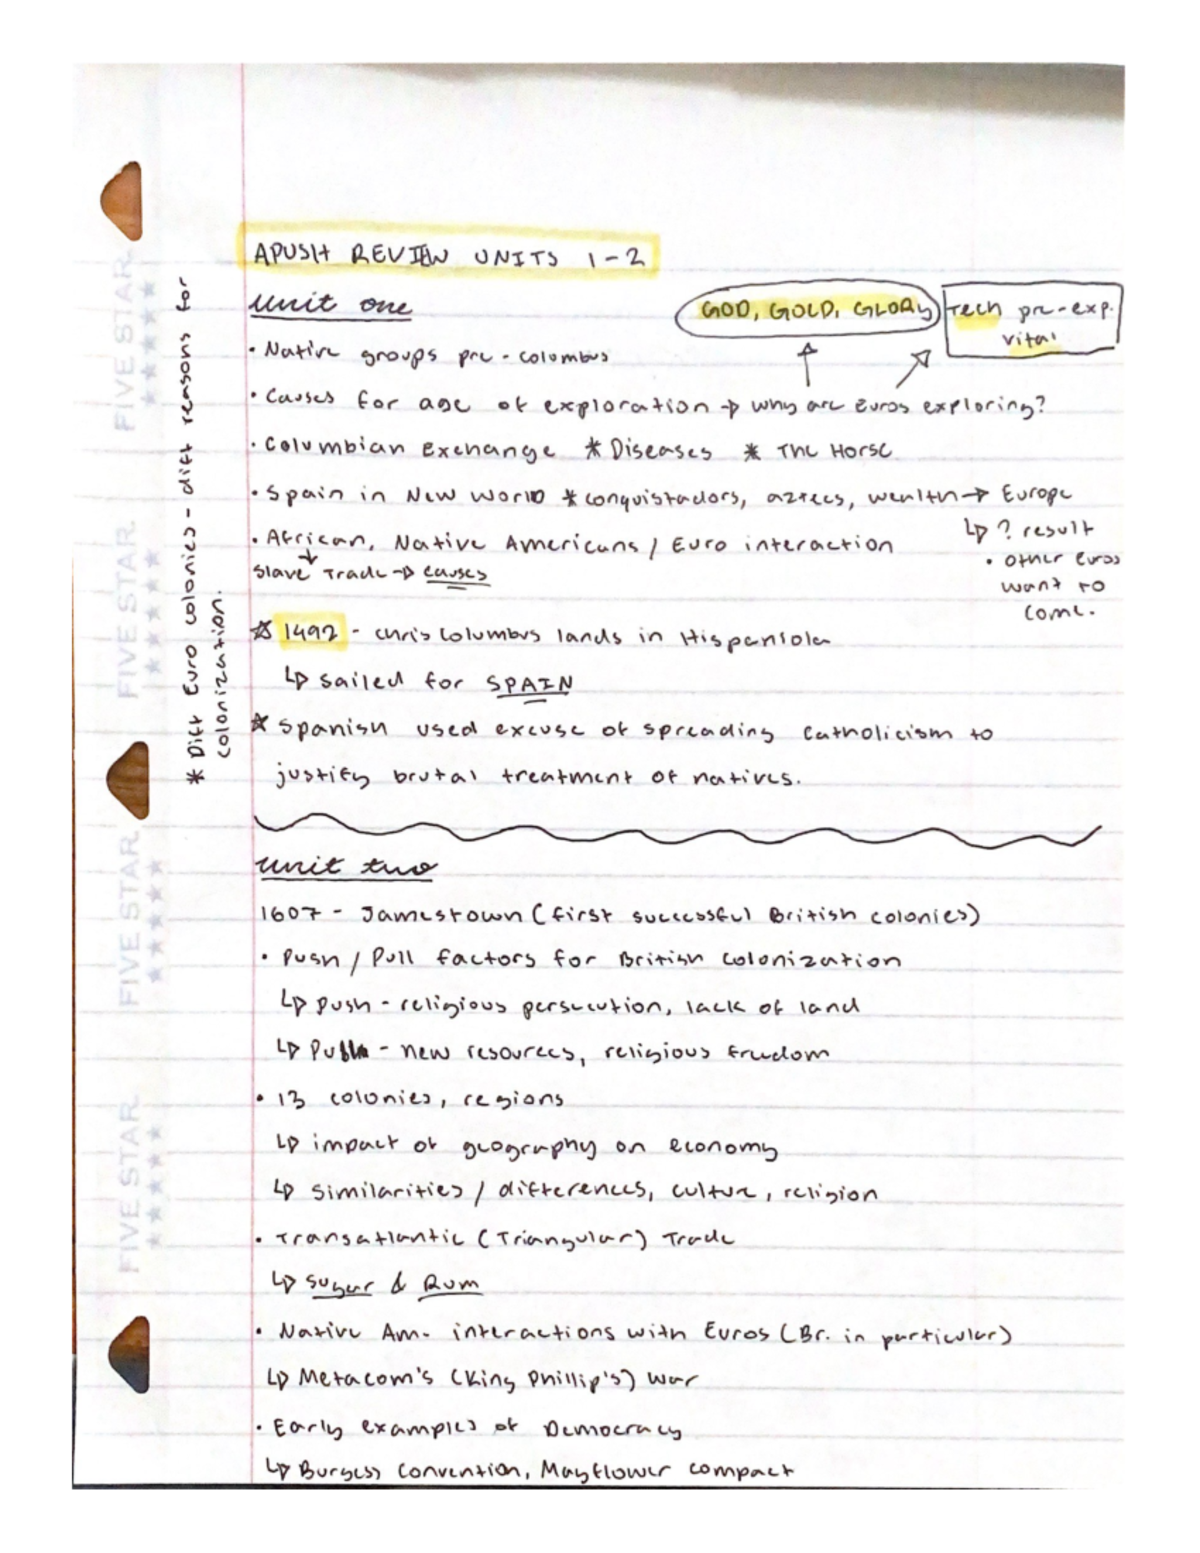 APUSH REVIEW UNITS 1-2
unit one
GOD, GOLD, GLORY
Tech pre-exp.
vital
• Native groups pre-colombus
• Causes for age of exploration → why are Euros exploring?
• Columbian Exchange * Diseases * The Horse
• Spain in New World * conquistadors, aztecs, wealth → Europe
↳ ? result
• other Euros
want to
come.
• African, Native Americans / Euro interaction
↓
slave Trade → causes
☆ 1492 - chris Columbus lands in Hispaniola
↳ sailed for SPAIN
☆ Spanish used excuse of spreading Catholicism to
justify brutal treatment of natives.
* Diff Euro colonies - diff reasons for
colonization.
unit two
1607 - Jamestown (first successful British colonies)
• Push / Pull factors for British Colonization
↳ push - religious persecution, lack of land
↳ Pull - new resources, religious freedom
• 13 colonies, regions
↳ impact of geography on economy
↳ similarities / differences, culture, religion
• Transatlantic (Triangular) Trade
↳ Sugar & Rum
• Native Am. interactions with Euros (Br. in particular)
↳ Metacom's (King Phillip's) war
• Early examples of Democracy
↳ Burgess Convention, Mayflower compact
FIVE STAR
FIVE STAR
FIVE STAR
FIVE STAR